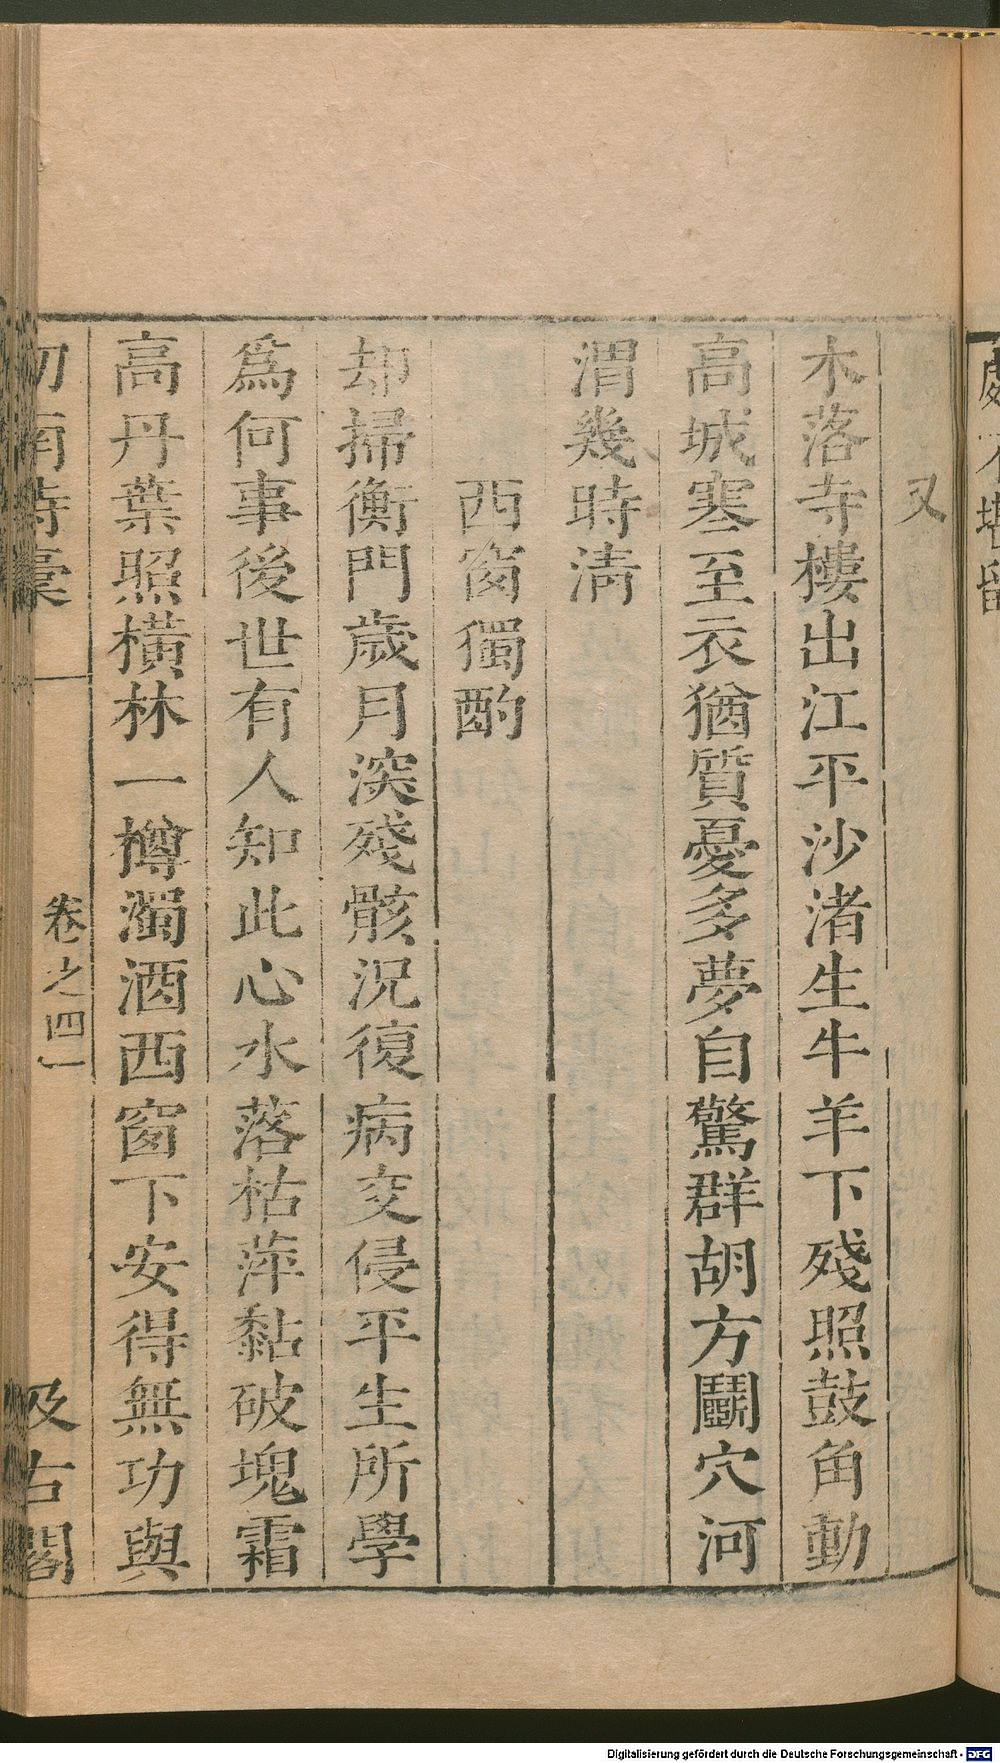 又
木落寺樓出江平沙渚生牛羊下殘照鼓角動
高城塞至衣猶質憂多夢自驚群胡方鬭穴河
渭幾時淸
西窗獨酌
却掃衡門歲月深殘骸況復病交侵平生所學
爲何事後世有人知此心水落枯萍黏破塊霜
高丹葉照橫林一樽濁酒西窗下安得無功與
劒南詩稾 卷之四 一 汲古閣
Digitalisierung gefördert durch die Deutsche Forschungsgemeinschaft - DFG